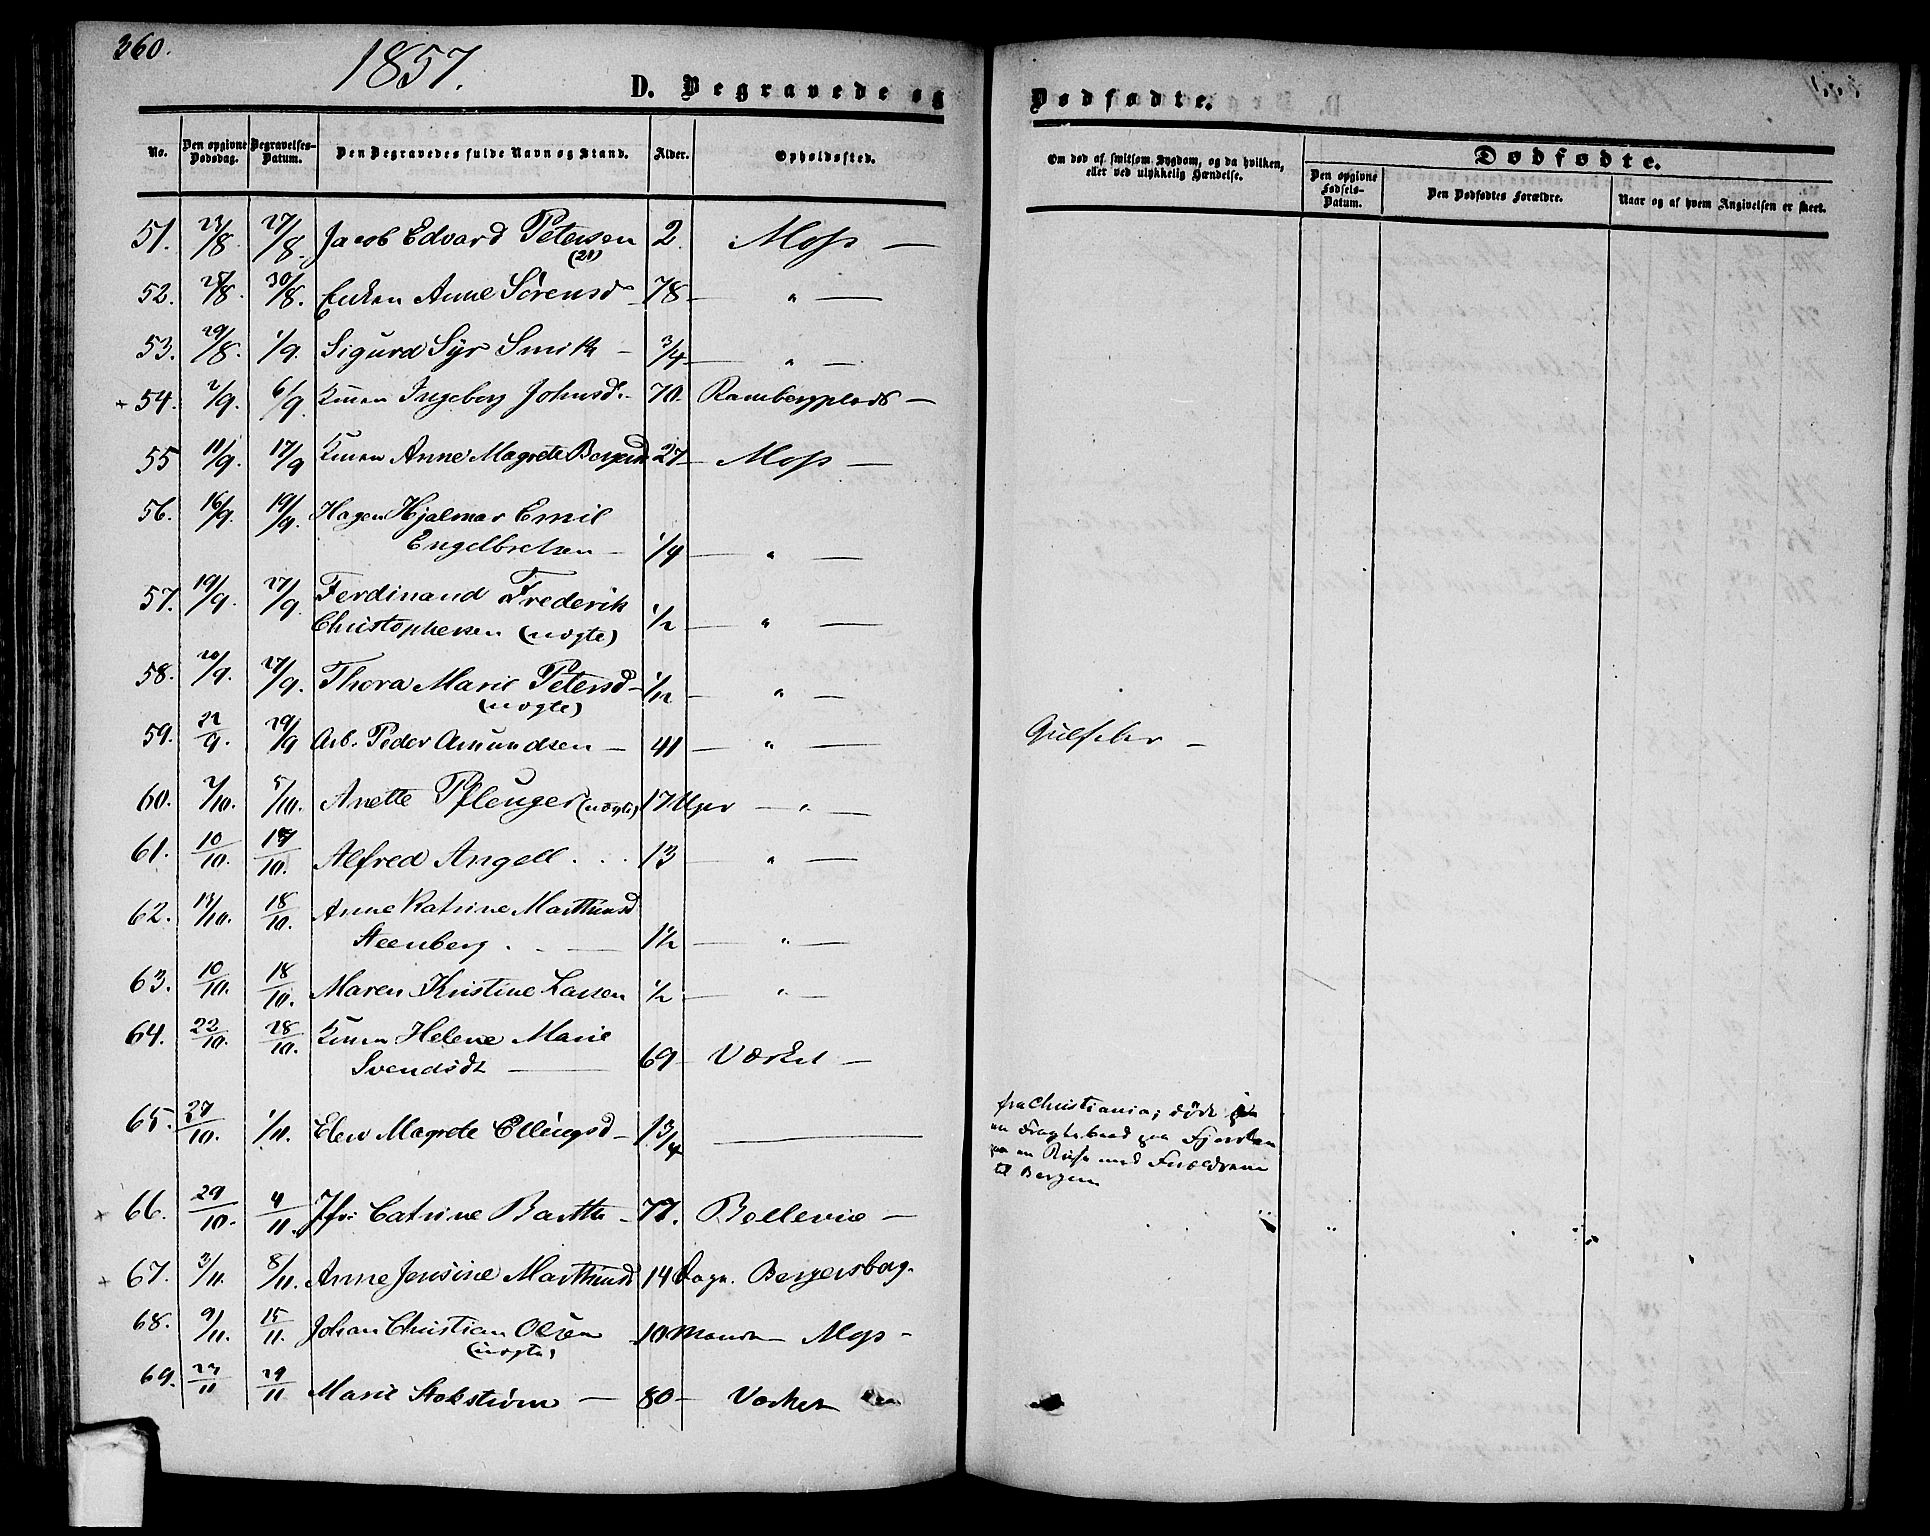 360.
1857.
D. Begravede og
Dødfødte.
No.
Den opgivne Dødsdag.
Begravelses-Datum.
Den Begravedes fulde Navn og Stand.
Alder.
Opholdssted.
Om død af smitsom Sygdom, og da hvilken, eller ved ulykkelig Hændelse.
Dødfødte.
Den opgivne Fødsels-Datum.
Den Dødfødtes Forældre.
Naar og af hvem Angivelsen er skeet.
51. 23/8 27/8. Jacob Edvard Petersen 2. Moss —
(21)
52. 28/8. 30/8. Enken Anne Sørensd 78 — " —
53. 29/8. 1/9. Sigurd Syr Smith — 3/4 — " —
+ 54. 2/9. 6/9. Konen Ingeborg Johnsd. 70. Rambergplads —
55 11/9. 17/9 Konen Anne Magrete 27 — Moss —
56. 16/9. 19/9. Hagen Hjalmar Emil
Engelbretsen — 1/4 — " —
57. 19/9. 27/9. Ferdinand Frederik
Christophersen (uægte) 1/2 — " —
58. 20/9. 27/9. Thora Marie Petersd — 1/12 — " —
(uægte)
59. 22/9. 29/9 Arb. Peder Amundsen — 41 — " — Gulfeber —
60. 2/10. 5/10. Anette Pfleuger (uægte) 17 Uger — " —
61. 10/10. 17/10. Alfred Angell . . . 13 — " —
62. 13/10. 18/10. Anne Katrine Marthinsd
Steenberg . — 1 1/2 — " —
63. 10/10. 18/10. Maren Kristine Larsen 1/2 — " —
64. 22/10. 28/10. Konen Helene Marie
Svendsdt — 69 — Værket —
65. 27/10. 1/11. Elen Magrete Ellingsd — 1 3/4 —
fra Christiania; døde
en Fragtebaad paa Fjorden
paa en Reise med Forældrene
til Bergen
+ 66. 29/10. 4/11. Jfr. Catrine Barth — 77. Bellevue —
+ 67. 3/11. 8/11. Anne Jensine Marthinsd 14 Dage. Bergersborg.
68. 9/11. 15/11. Johan Christian Olsen 10 Maaneder Moss —
(uægte)
69. 29/11 Marie Stokstrøm — 80 — Værket